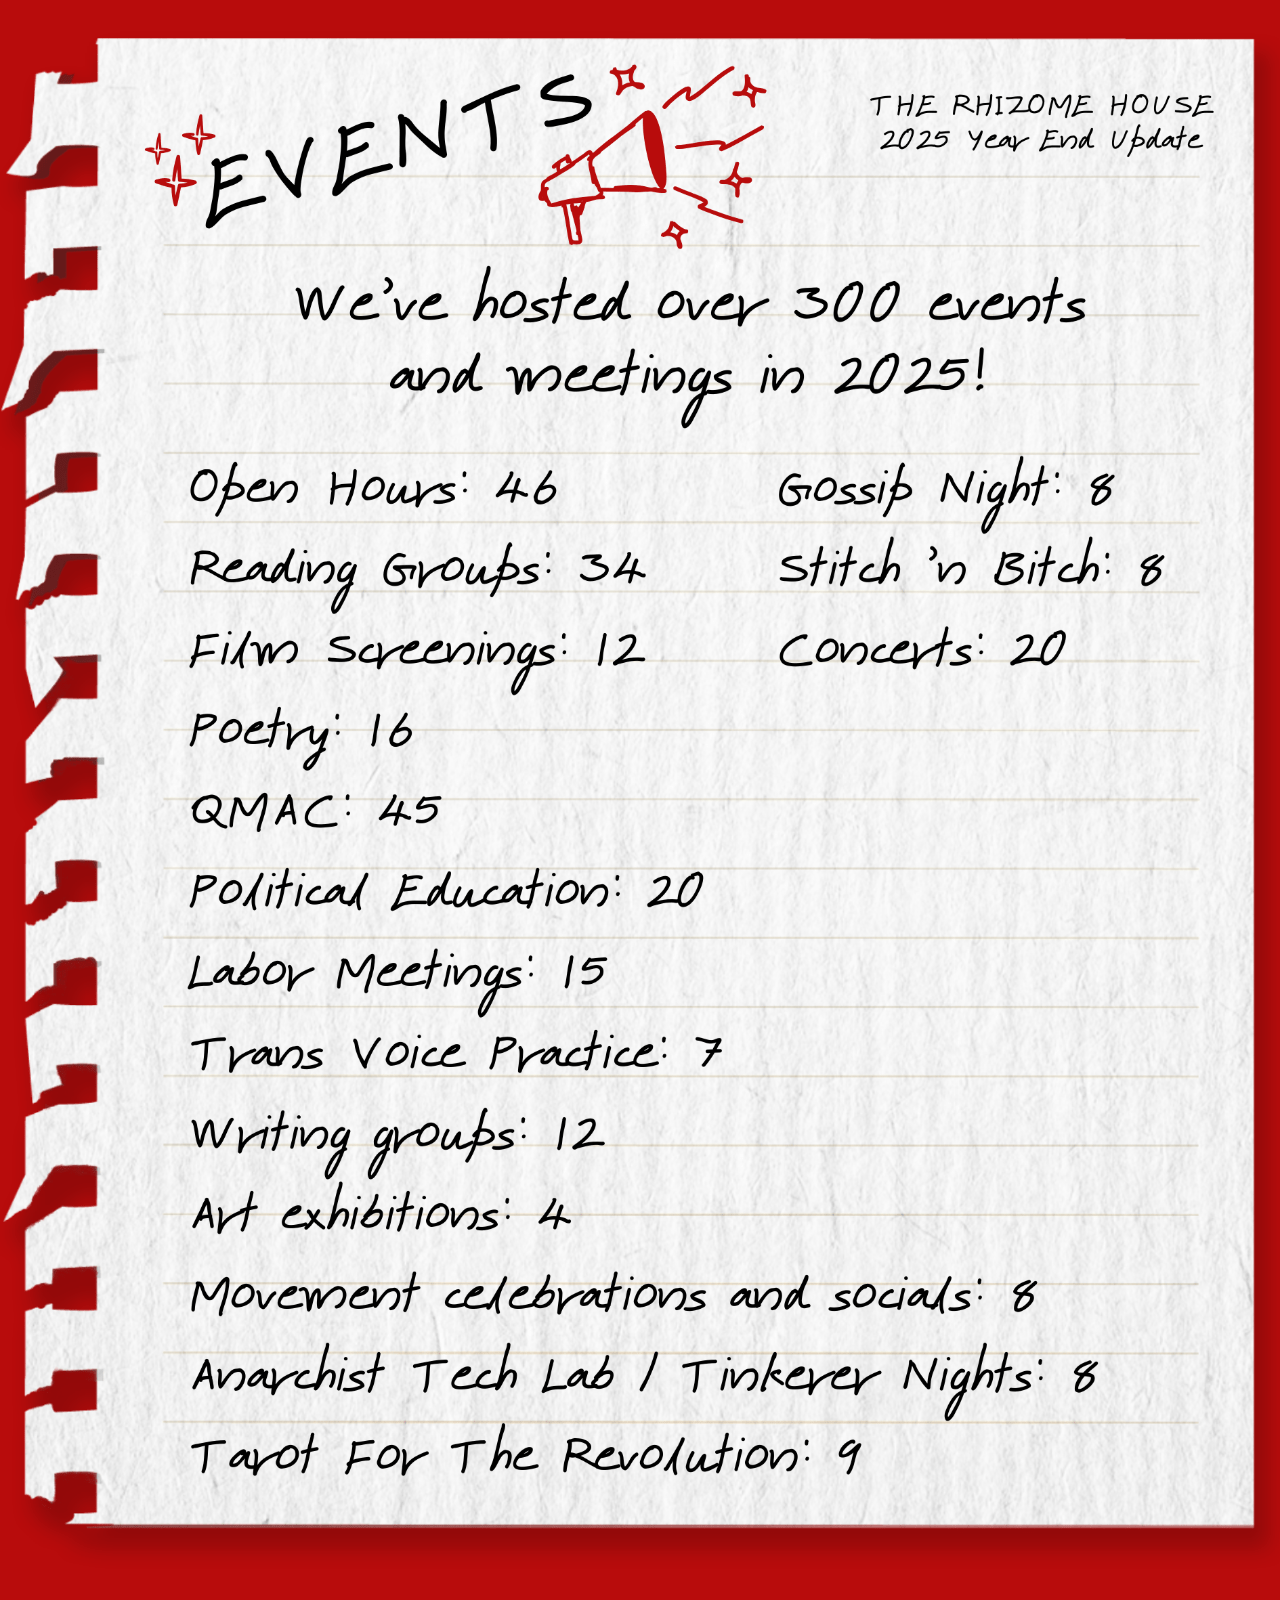 EVENTS
THE RHIZOME HOUSE
2025 Year End Update
We've hosted over 300 events
and meetings in 2025!
Open Hours: 46
Reading Groups: 34
Film Screenings: 12
Poetry: 16
QMAC: 45
Political Education: 20
Labor Meetings: 15
Trans Voice Practice: 7
Writing groups: 12
Art exhibitions: 4
Movement celebrations and socials: 8
Anarchist Tech Lab / Tinkerer Nights: 8
Tarot For The Revolution: 9
Gossip Night: 8
Stitch 'n Bitch: 8
Concerts: 20